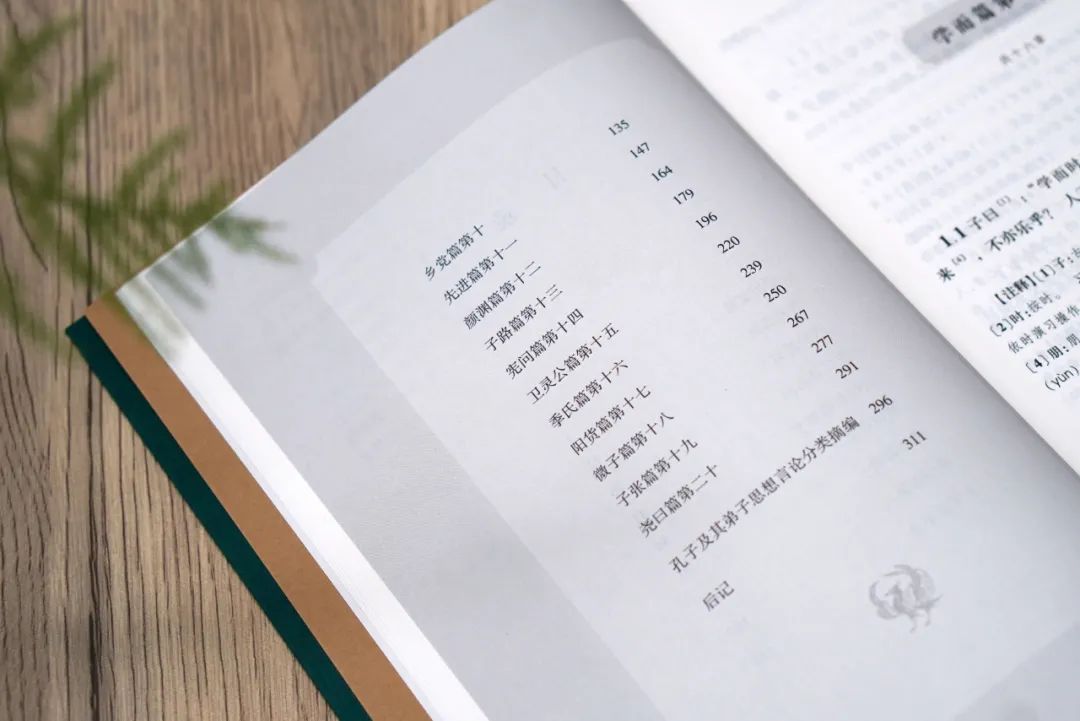 乡党篇第十 135
先进篇第十一 147
颜渊篇第十二 164
子路篇第十三 179
宪问篇第十四 196
卫灵公篇第十五 220
季氏篇第十六 239
阳货篇第十七 250
微子篇第十八 267
子张篇第十九 277
尧曰篇第二十 291
孔子及其弟子思想言论分类摘编 296
后记 311
学而篇第
共十六章
1.1 子曰〔1〕:“学而时
来〔4〕,不亦乐乎?人
【注释】〔1〕子:
〔2〕时:按时。
依时 习操作
〔4〕朋:
(yùn)